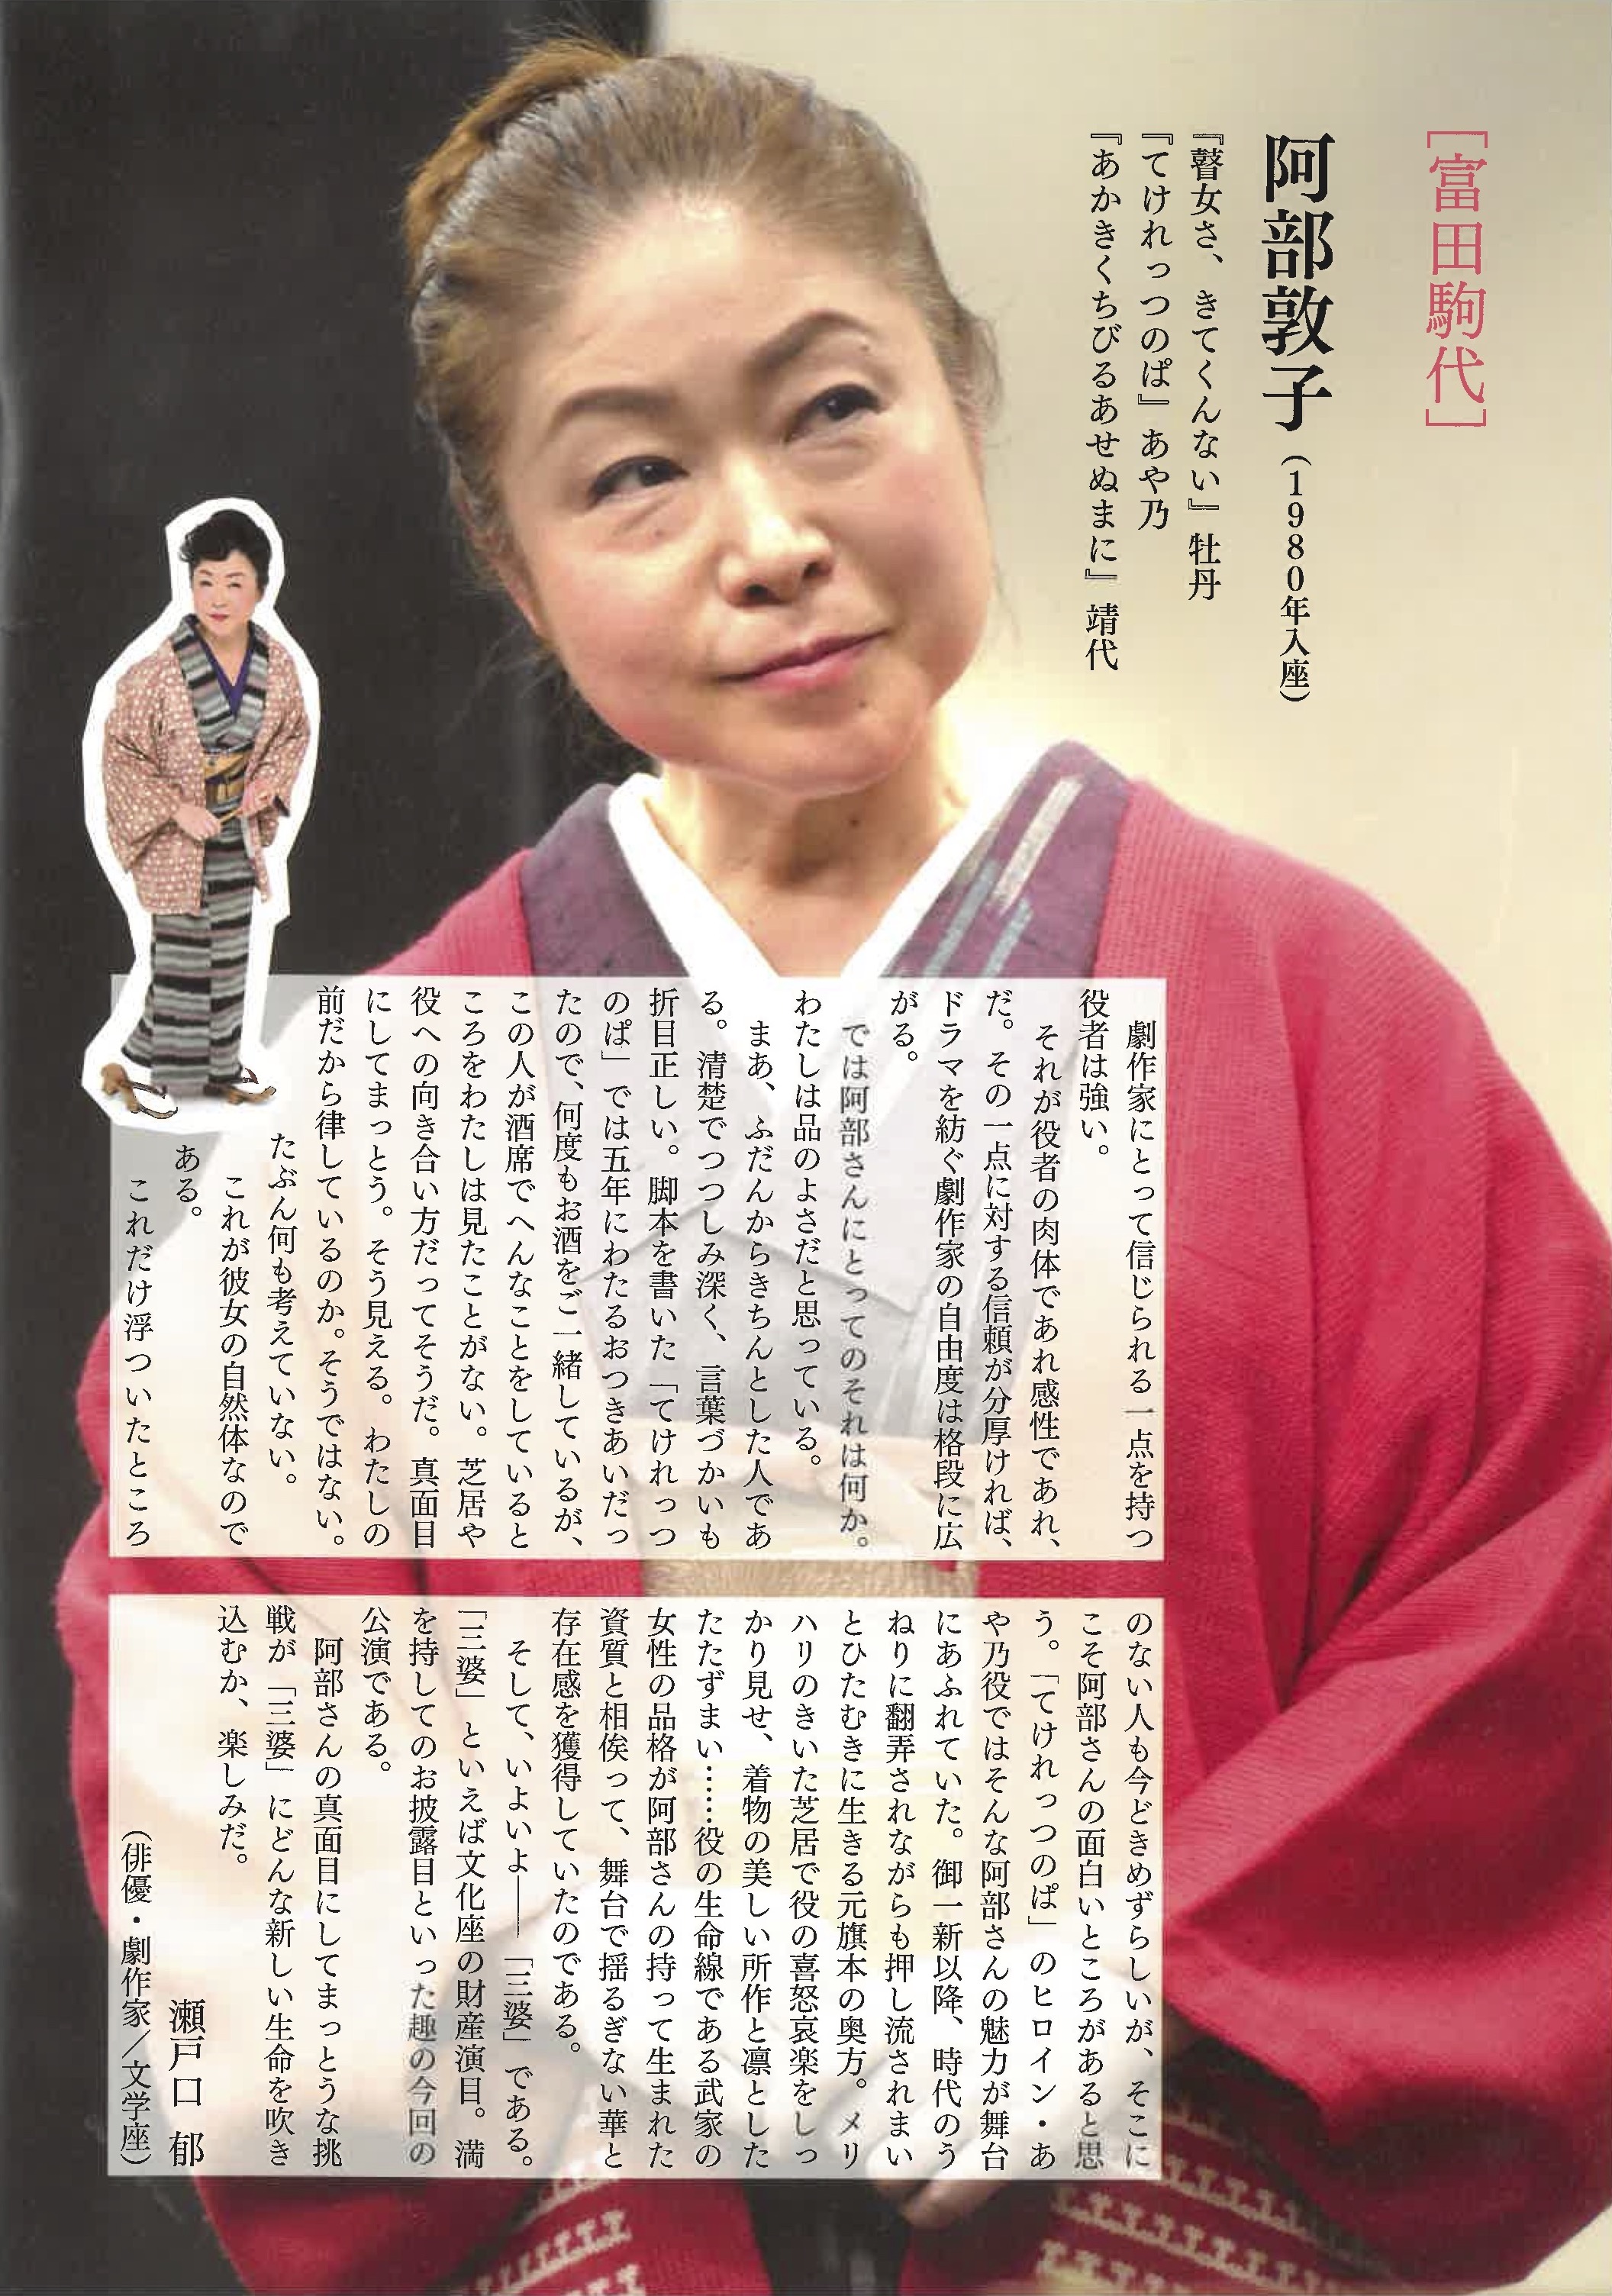 ［富田駒代］
阿部敦子（1980年入座）
『瞽女さ、きてくんない』牡丹
『てけれっつのぱ』あや乃
『あかきくちびるあせぬまに』靖代
劇作家にとって信じられる一点を持つ
役者は強い。
それが役者の肉体であれ感性であれ、
だ。その一点に対する信頼が分厚ければ、
ドラマを紡ぐ劇作家の自由度は格段に広
がる。
では阿部さんにとってのそれは何か。
わたしは品のよさだと思っている。
まあ、ふだんからきちんとした人であ
る。清楚でつつしみ深く、言葉づかいも
折目正しい。脚本を書いた「てけれっつ
のぱ」では五年にわたるおつきあいだっ
たので、何度もお酒をご一緒しているが、
この人が酒席でへんなことをしていると
ころをわたしは見たことがない。芝居や
役への向き合い方だってそうだ。真面目
にしてまっとう。そう見える。わたしの
前だから律しているのか。そうではない。
たぶん何も考えていない。
これが彼女の自然体なので
ある。
これだけ浮ついたところ
のない人も今どきめずらしいが、そこに
こそ阿部さんの面白いところがあると思
う。「てけれっつのぱ」のヒロイン・あ
や乃役ではそんな阿部さんの魅力が舞台
にあふれていた。御一新以降、時代のう
ねりに翻弄されながらも押し流されまい
とひたむきに生きる元旗本の奥方。メリ
ハリのきいた芝居で役の喜怒哀楽をしっ
かり見せ、着物の美しい所作と凛とした
たたずまい……役の生命線である武家の
女性の品格が阿部さんの持って生まれた
資質と相俟って、舞台で揺るぎない華と
存在感を獲得していたのである。
そして、いよいよ――「三婆」である。
「三婆」といえば文化座の財産演目。満
を持してのお披露目といった趣の今回の
公演である。
阿部さんの真面目にしてまっとうな挑
戦が「三婆」にどんな新しい生命を吹き
込むか、楽しみだ。
瀬戸口 郁
（俳優・劇作家／文学座）